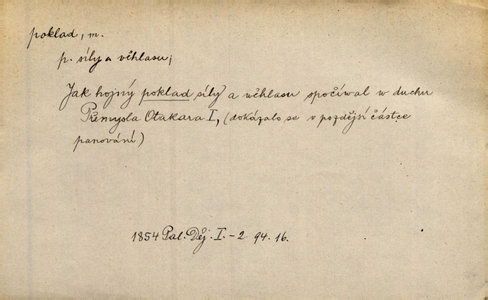 poklad, m.
p. síly a věhlasu;
Jak hojný poklad síly a wěhlasu spočíwal w duchu
Přemysla Otakara I, (dokázalo se v pozdější částce
panování)
1854 Pal. Děj. I.-2 94. 16.